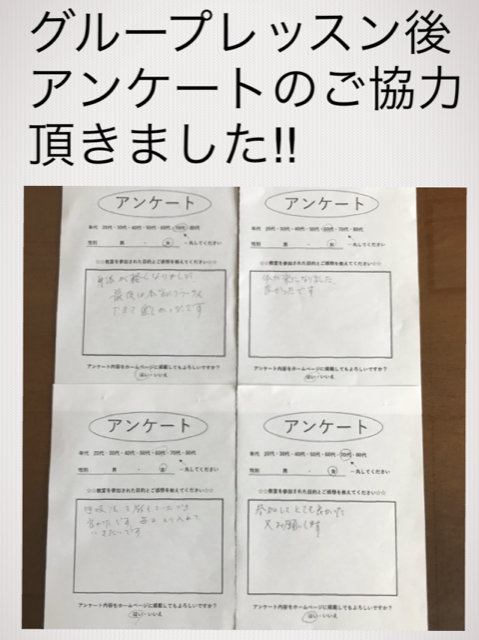 グループレッスン後
アンケートのご協力
頂きました!!
アンケート
年代 20代・30代・40代・50代・60代・70代・80代
性別 男 ・ 女 ←丸してください
☆☆教室を参加された目的とご感想を教えてください☆☆
身体が軽くなりました
アンケート内容をホームページに掲載してもよろしいですか?
はい・いいえ
アンケート
年代 20代・30代・40代・50代・60代・70代・80代
性別 男 ・ 女 ←丸してください
☆☆教室を参加された目的とご感想を教えてください☆☆
楽になりました
良かったです
アンケート内容をホームページに掲載してもよろしいですか?
はい・いいえ
アンケート
年代 20代・30代・40代・50代・60代・70代・80代
性別 男 ・ 女 ←丸してください
☆☆教室を参加された目的とご感想を教えてください☆☆
アンケート内容をホームページに掲載してもよろしいですか?
はい・いいえ
アンケート
年代 20代・30代・40代・50代・60代・70代・80代
性別 男 ・ 女 ←丸してください
☆☆教室を参加された目的とご感想を教えてください☆☆
参加してとても良かった
アンケート内容をホームページに掲載してもよろしいですか?
はい・いいえ